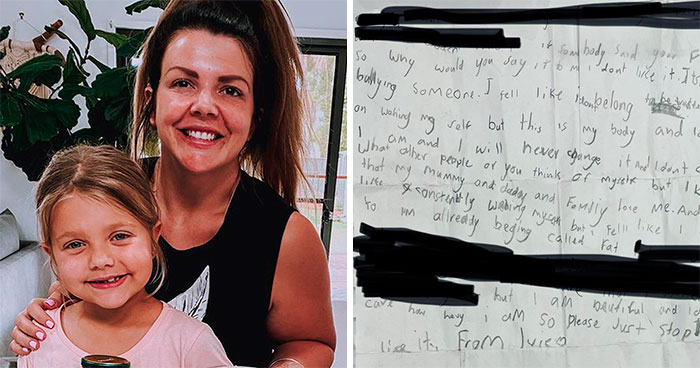 if somebody said your F
so why would you say it to mi i dont like it. It
bullying someone. I fell like I dont belong to be
on waking my self but this is my body and
I am and I will never change it and I dont c
What other people or you think of myself but I
that my mummy and daddy and Family love me. And
like constently waking myself but i fell like I
to im allready beging called Fat
but I am beautiful and i d
care how hevy i am so please Just stop
it, From